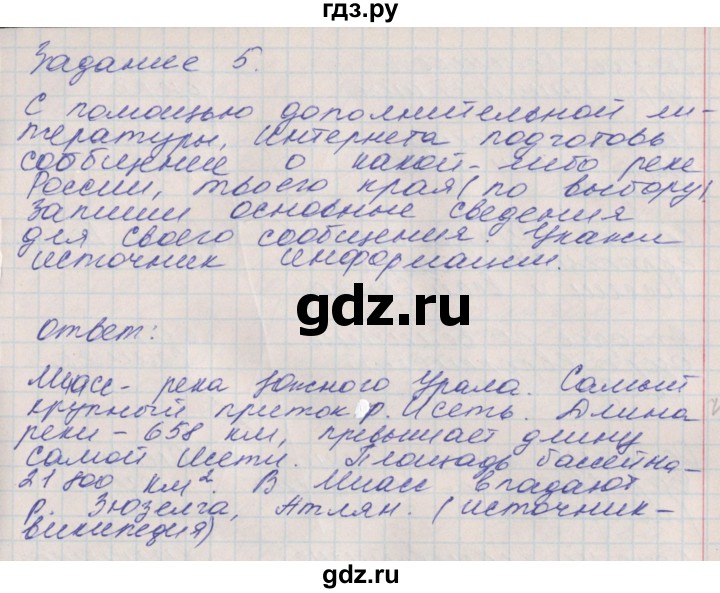 гдз.ру
Задание 5.
С помощью дополнительной ли-
тературы, Интернета подготовь
сообщение о какой-либо реке
России, твоего края (по выбору).
Запиши основные сведения
для своего сообщения. Укажи
источник информации.
gdz.ru
Ответ:
Миасс - река Южного Урала. Самый
крупный приток р. Исеть. Длина
реки - 658 км, превышает длину
самой Исети. Площадь бассейна -
21 800 км². В Миасс впадают
р. Зюзелга, Атлян. (источник -
википедия)
gdz.ru